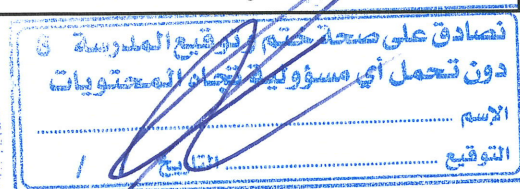 نصادق على صحة ختم وتوقيع المدرسة
دون تحمل أي مسؤولية تجاه المحتويات
الإسم
التوقيع التاريخ /